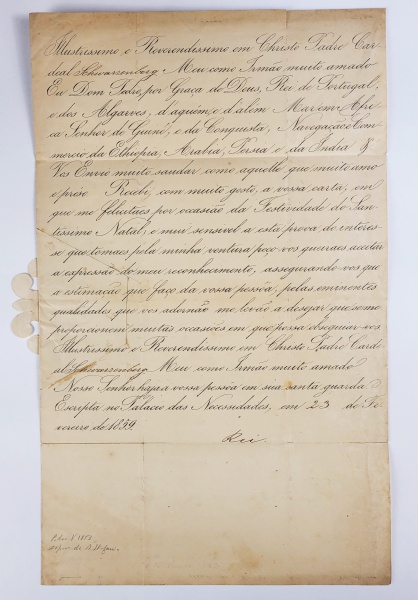 Illustrissimo e Reverendissimo em Christo Padre Car-
deal Schwarzenberg Meu como Irmão muito amado
Eu Dom Pedro, por Graça de Deus, Rei de Portugal,
e dos Algarves, d'aquém, e d'além Mar, em Afri-
ca Senhor de Guiné, e da Conquista, Navegação, Com-
mercio da Ethiopia, Arabia, Persia e da India &
Vos Envio muito saudar como aquelle que muito amo
e préso Recebi, com muito gosto, a vossa carta, em
que me felicitaes por occasião da Festividade do San-
tissimo Natal, e mui sensivel a esta prova de interes-
se que tomaes pela minha ventura peço-vos queiraes aceitar
a expressão do meu reconhecimento, assegurando-vos que
a estimação que faço da vossa pessôa, pelas eminentes
qualidades que vos adornão me levão a desejar que se me
proporcionem muitas occasiões em que possa obsequiar-vos
Illustrissimo e Reverendissimo em Christo Padre Card-
al Schwarzenberg Meu como Irmão muito amado
Nosso Senhor haja a vossa pessôa em sua santa guarda
Escripta no Palacio das Necessidades, em 23 de Fe-
vereiro de 1859.
Rei